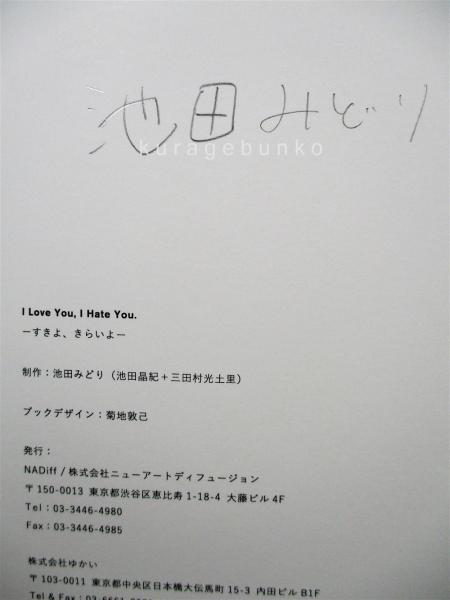 池田みどり
kuragebunko
I Love You, I Hate You.
ーすきよ、きらいよー
制作：池田みどり（池田晶紀＋三田村光土里）
ブックデザイン：菊地敦己
発行：
NADiff / 株式会社ニューアートディフュージョン
〒150-0013 東京都渋谷区恵比寿1-18-4 大藤ビル4F
Tel：03-3446-4980
Fax：03-3446-4985
株式会社ゆかい
〒103-0011 東京都中央区日本橋大伝馬町15-3 内田ビルB1F
Tel & Fax：03-6661-